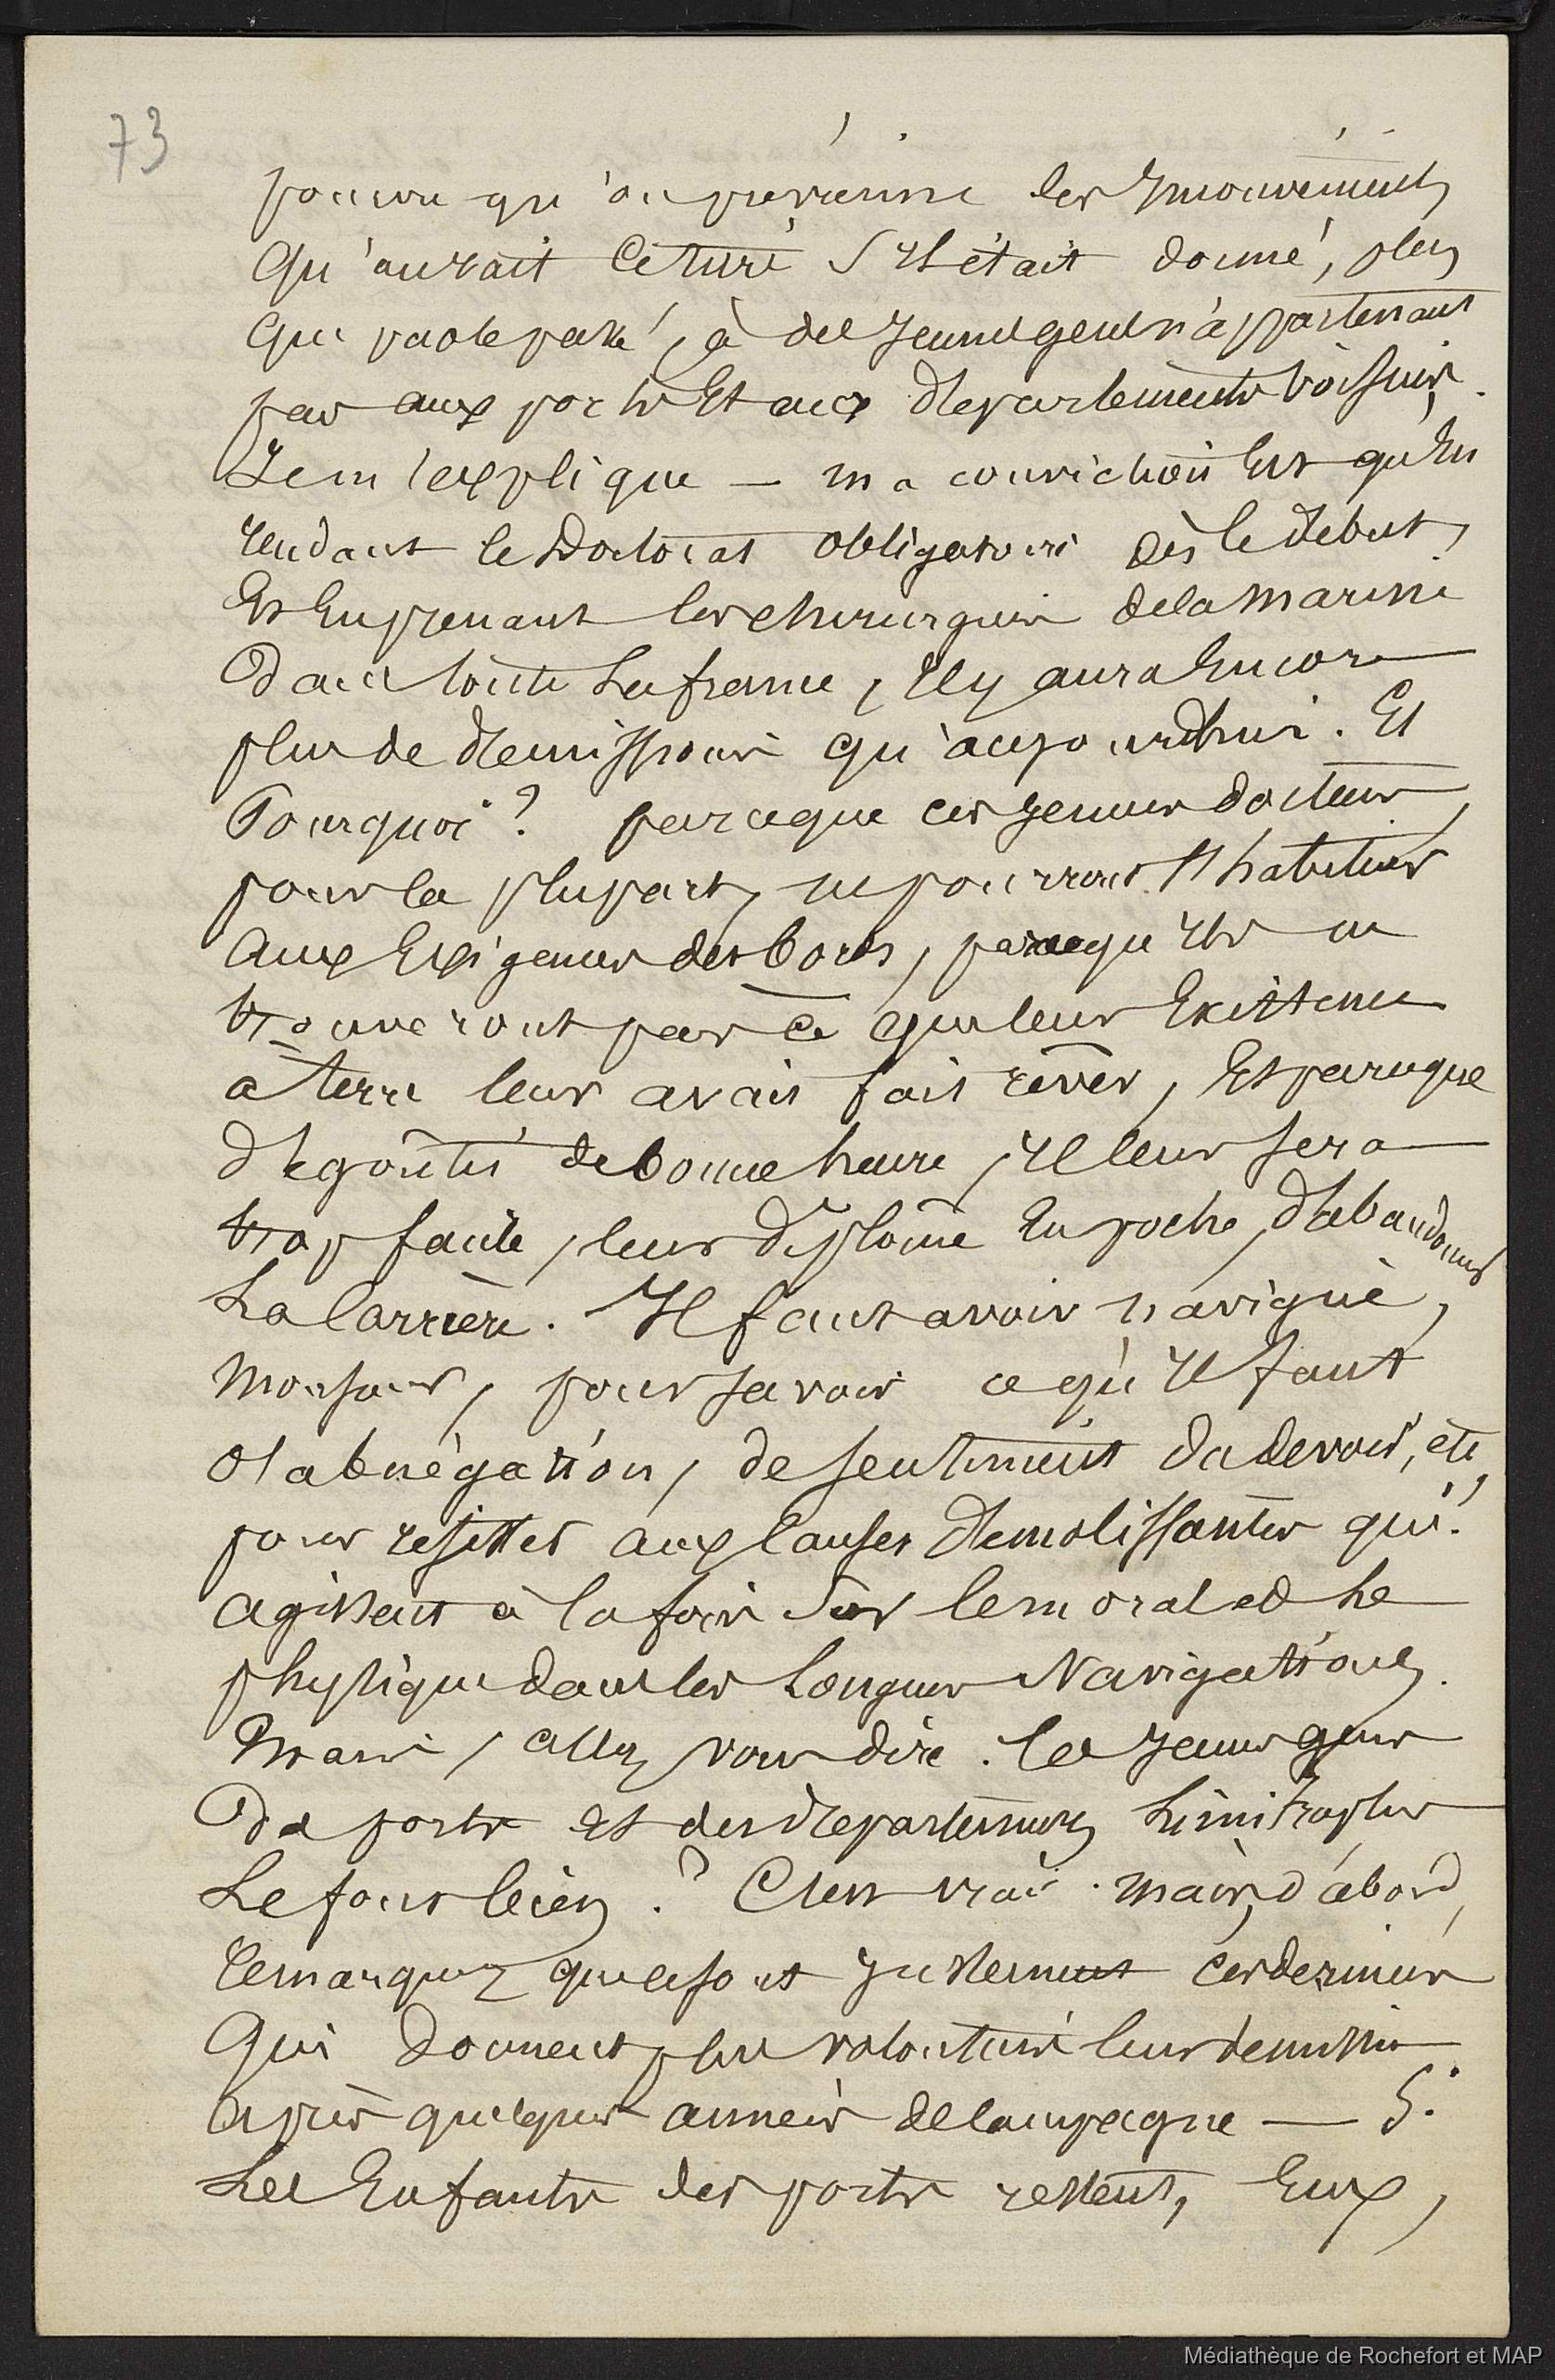 73
pourvu qu'on prévienne les inconvénients
qu'aurait ce titre s'il était donné, plus
que par le passé, à des jeunes gens n'appartenant
pas aux ports et aux départements voisins.
Je m'explique — ma conviction est qu'en
rendant le Doctorat obligatoire dès le début,
et en prenant les chirurgiens de la marine
dans toute la france, il y aura encore
plus de démissions qu'aujourd'hui. Et
Pourquoi ? parceque ces jeunes docteurs,
pour la plupart, ne pourront s'habituer
aux exigences des bords, parcequ'ils ne
trouveront pas ce que leur existence
à terre leur avait fait rêver, et parceque
dégoûtés de bonne heure, il leur sera
trop facile, leur diplôme en poche, d'abandonner
la Carrière. Il faut avoir navigué,
Monsieur, pour savoir ce qu'il faut
d'abnégation, de sentiment du devoir, etc,
pour resister aux causes démolissantes qui
agissent à la fois sur le moral et le
physique dans les longues Navigations.
Mais, allez vous dire. les jeunes gens
des ports et des départements limitrophes
le font bien ? C'est vrai. mais, d'abord,
remarquez que ce sont justement ces derniers
qui donnent plus volontiers leur demission
après quelques années de campagne — S.
Les enfants des ports restent, eux,
Médiathèque de Rochefort et MAP